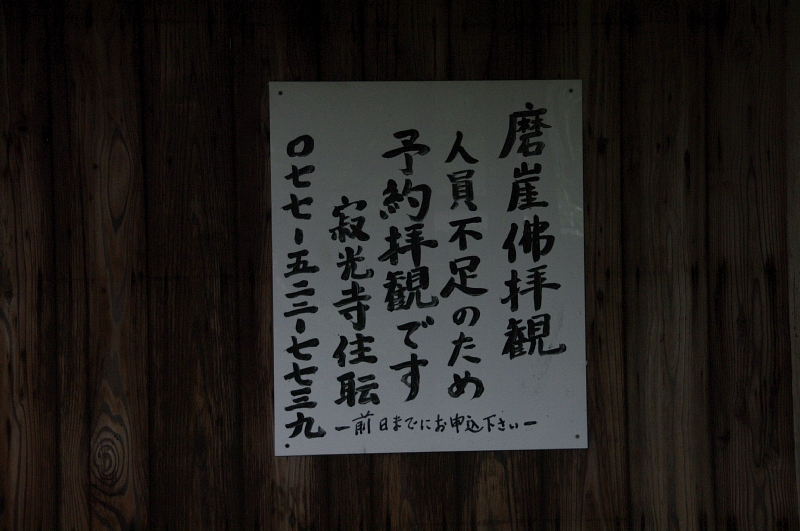 磨崖佛拝観
人員不足のため
予約拝観です
寂光寺住職
〇七七-五二二-七七三九
-前日までにお申込下さい-